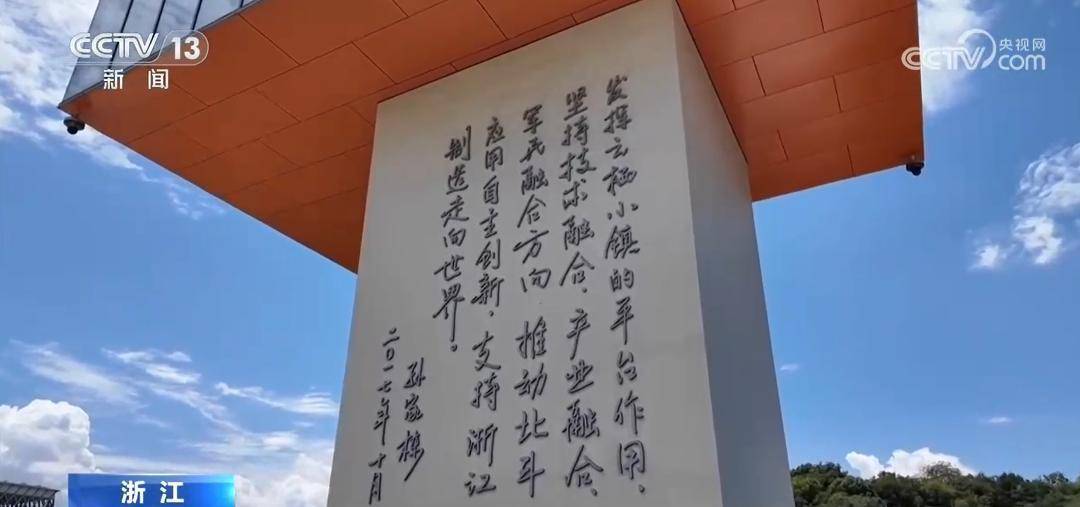 CCTV 13
新闻
央视网
CCTV.com
发挥云栖小镇的平台作用、
坚持技术融合、产业融合、
军民融合方向 推动北斗
应用自主创新、支持浙江
制造走向世界。
孙家栋
二〇一七年十月
浙江